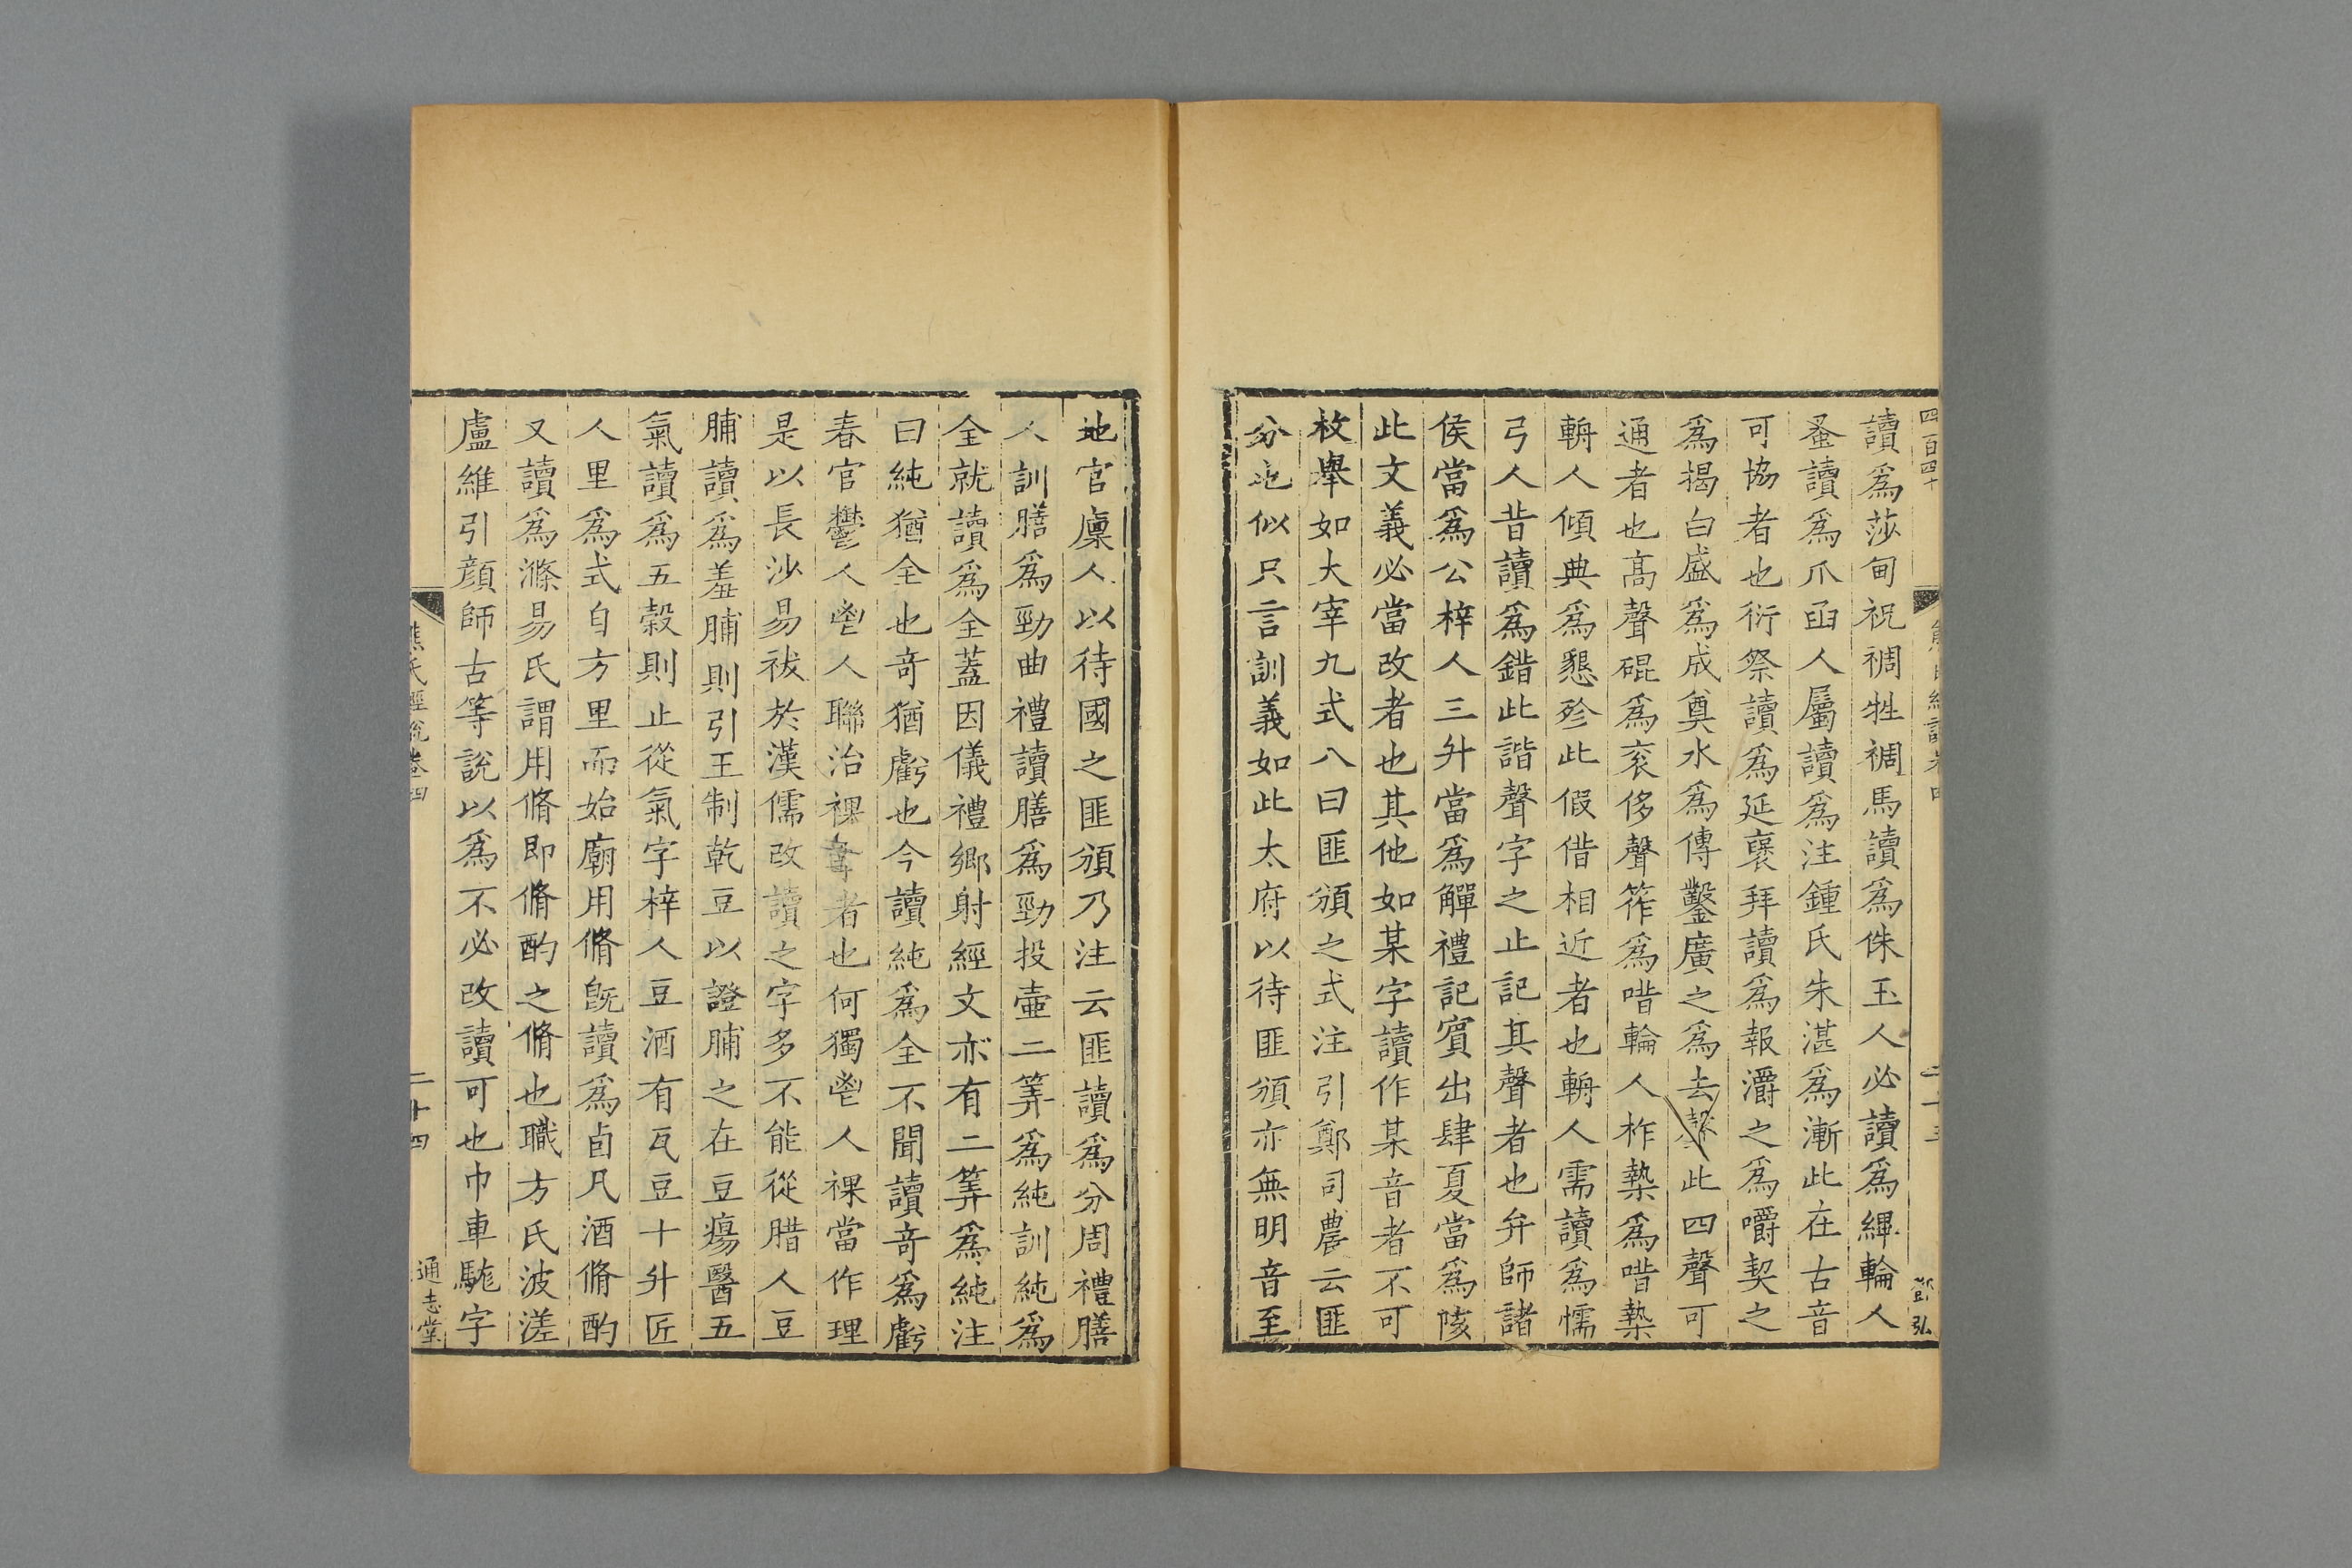 四百四十
讀爲莎甸祝禂牲禂馬讀爲侏玉人必讀爲縪輪人
蚤讀爲爪函人屬讀爲注鍾氏朱湛爲漸此在古音
可協者也衍祭讀爲延襃拜讀爲報灂之爲嚼契之
爲揭白盛爲成奠水爲傳鑿廣之爲去聲此四聲可
通者也高聲䃂爲衮侈聲筰爲唶輪人柞槷爲唶槷
輈人傾典爲懇殄此假借相近者也輈人需讀爲懦
弓人昔讀爲錯此諧聲字之止記其聲者也弁師諸
侯當爲公梓人三升當爲觶禮記賓出肆夏當爲陔
此文義必當改者也其他如某字讀作某音者不可
枚舉如大宰九式八曰匪頒之式注引鄭司農云匪
分也似只言訓義如此太府以待匪頒亦無明音至
地官廩人以待國之匪頒乃注云匪讀爲分周禮膳
人訓膳爲勁曲禮讀膳爲勁投壷二筭爲純訓純爲
全就讀爲全蓋因儀禮鄉射經文亦有二筭爲純注
曰純猶全也奇猶虧也今讀純爲全不聞讀奇爲虧
春官鬱人鬯人聯治祼事者也何獨鬯人祼當作理
是以長沙易祓於漢儒改讀之字多不能從腊人豆
脯讀爲羞脯則引王制乾豆以證脯之在豆瘍醫五
氣讀爲五榖則止從氣字梓人豆酒有瓦豆十升匠
人里爲式自方里而始廟用脩旣讀爲卣凡酒脩酌
又讀爲滌易氏謂用脩即脩酌之脩也職方氏波溠
盧維引顔師古等說以爲不必改讀可也巾車駹字
熊氏經說卷四
二十四
通志堂